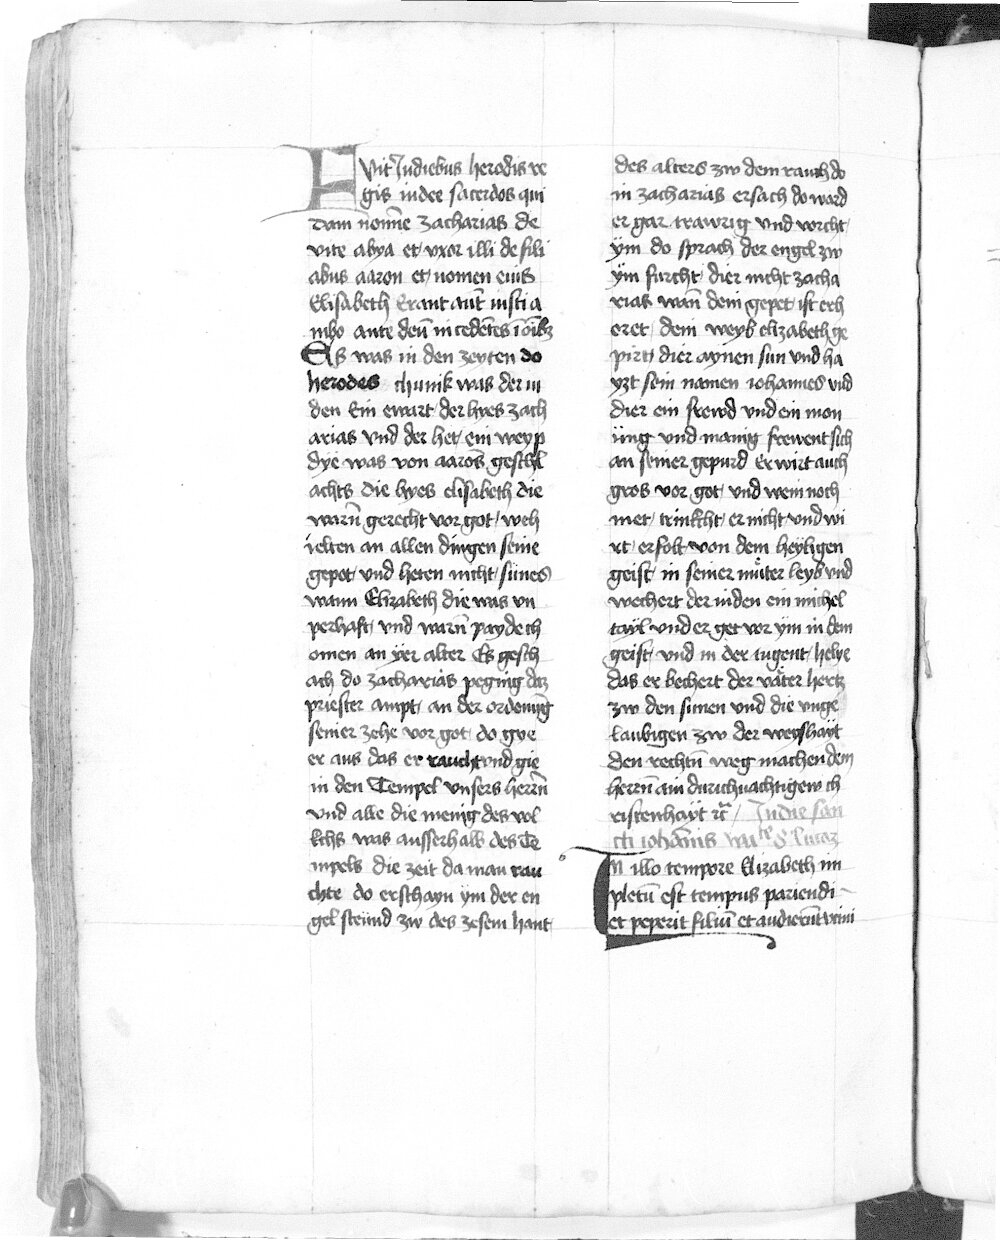 FVit Jn diebus herodis re
gis iudee sacerdos qui
dam nom̄ne Zacharias de
vite abya et vxor illi de fili
abus aaron et nomen eius
Elisabeth Erant aūt iusti a
mbo ante deū incedētes ī oībꝫ
Es was in den zeyten do
herodes chunik was der iu
den Ein ewart der hyes zach
arias vnd der het ein weyp
dye was von aarōs geschl
achts die hyes elisabeth die
warn̄ gerecht vor got weh
ielten an allen dingen seine
gepot vnd heten nicht sunes
wann Elizabeth die was vn
perhaft vnd warn̄ payde ch
omen an yer alter Es gesch
ach do zacharias peging daz
priester ampt an der ordenūg
seiner zehe vor got do gye
er aus das er raucht vnd gie
in den Tempel vnsers herrn̄
vnd alle die menig des vol
kchs was ausserhalb des Te
mpels die zeit da man rau
chte do erschayn ym der en
gel steund zw des zesem hant
des alters zw dem rauch do
in zacharias ersach do ward
er gar trawrig vnd vorcht
ym do sprach der engel zw
ym furcht dier nicht zacha
rias wan̄ dein gepet ist erh
eret dein weyb elizabeth ge
pirt dier aynen sun vnd ha
yzt sein namen iohannes vnd
dier ein frewd vnd ein mon
ung vnd manig frewent sich
an seiner gepurd Er wirt auch
gros vor got vnd wein noch
met trinkcht er nicht vnd wi
rt erfolt von dem heyligen
geist in seiner muͦter leyb vnd
wechert der iuden ein michel
tayl vnd er get vor ym in dem
geist vnd in der tugent helye
das er bechert der väter hertz
zw den sunen vnd die vnge
laubigen zw der weyshayt
den rechtn̄ weg machen dem
herrn̄ ain durichnachtigew ch
ristenhayt ꝛc̄ Jn die san
cti iohānis
JN illo tempore Elizabeth im
pletū est tempus pariendi
et peperit filiū et audierūt vicini